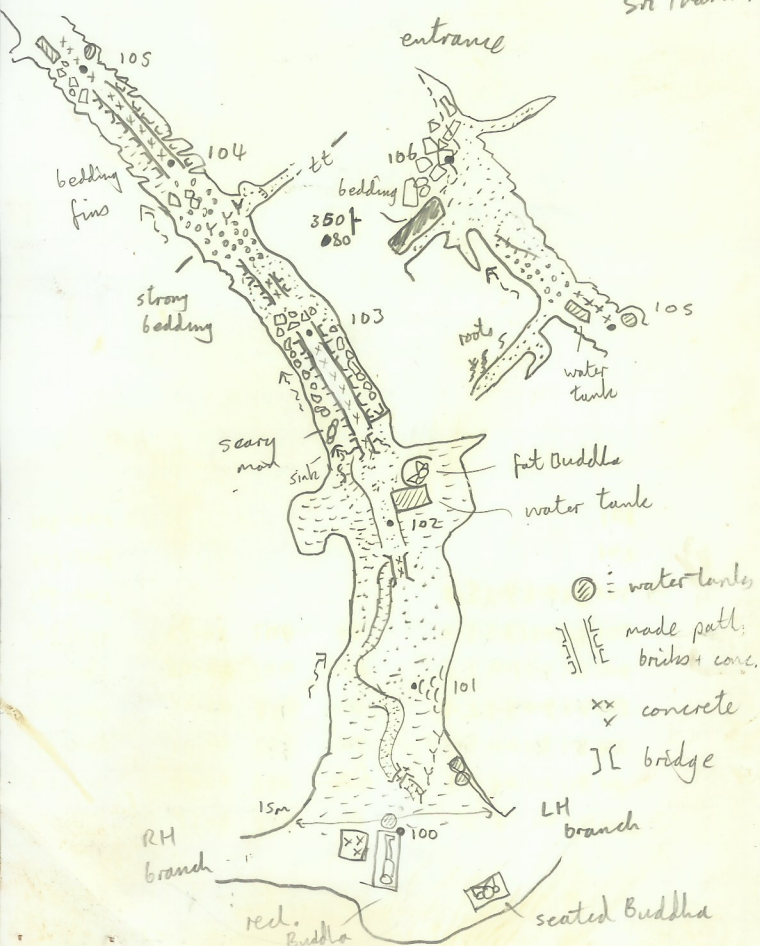 entrance
105
104
tt
bedding
fins
106
bedding
350
80
strong
bedding
103
105
roots
water
tank
scary
man
sink
fat Buddha
water tank
102
water tanks
made path:
bricks + conc.
101
concrete
bridge
15m
LH
branch
100
RH
branch
recl.
Buddha
seated Buddha